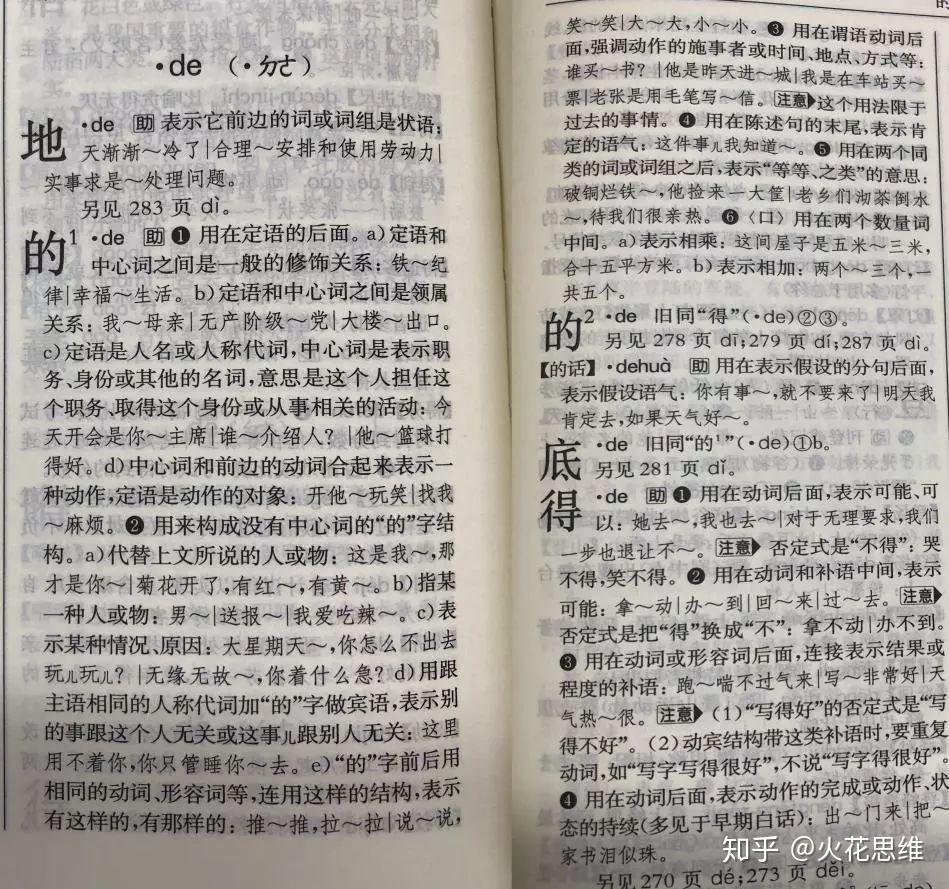 ·de (·ㄉㄜ)
地 ·de 助 表示它前边的词或词组是状语：
天渐渐～冷了|合理～安排和使用劳动力|
实事求是～处理问题。
另见 283 页 dì。
的¹ ·de 助 ❶ 用在定语的后面。a)定语和
中心词之间是一般的修饰关系：铁～纪
律|幸福～生活。b)定语和中心词之间是领属
关系：我～母亲|无产阶级～党|大楼～出口。
c)定语是人名或人称代词，中心词是表示职
务、身份或其他的名词，意思是这个人担任这
个职务、取得这个身份或从事相关的活动：今
天开会是你～主席|谁～介绍人？|他～篮球打
得好。d)中心词和前边的动词合起来表示一
种动作，定语是动作的对象：开他～玩笑|找我
～麻烦。❷ 用来构成没有中心词的“的”字结
构。a)代替上文所说的人或物：这是我～，那
才是你～|菊花开了，有红～，有黄～。b)指某
一种人或物：男～|送报～|我爱吃辣～。c)表
示某种情况、原因：大星期天～，你怎么不出去
玩儿玩儿？|无缘无故～，你着什么急？d)用跟
主语相同的人称代词加“的”字做宾语，表示别
的事跟这个人无关或这事儿跟别人无关：这里
用不着你，你只管睡你～去。e)“的”字前后用
相同的动词、形容词等，连用这样的结构，表示
有这样的，有那样的：推～推，拉～拉|说～说，
笑～笑|大～大，小～小。❸ 用在谓语动词后
面，强调动作的施事者或时间、地点、方式等：
谁买～书？|他是昨天进～城|我是在车站买～
票|老张是用毛笔写～信。注意 这个用法限于
过去的事情。❹ 用在陈述句的末尾，表示肯
定的语气：这件事儿我知道～。❺ 用在两个同
类的词或词组之后，表示“等等、之类”的意思：
破铜烂铁～，他捡来一大筐|老乡们沏茶倒水
～，待我们很亲热。❻〈口〉用在两个数量词
中间。a)表示相乘：这间屋子是五米～三米，
合十五平方米。b)表示相加：两个～三个，一
共五个。
的² ·de 旧同“得”(·de)②③。
另见 278 页 dī；279 页 dí；287 页 dì。
【的话】·dehuà 助 用在表示假设的分句后面，
表示假设语气：你有事～，就不要来了|明天我
肯定去，如果天气好～。
底 ·de 旧同“的¹”(·de)①b。
另见 281 页 dǐ。
得 ·de 助 ❶ 用在动词后面，表示可能、可
以：她去～，我也去～|对于无理要求，我们
一步也退让不～。注意 否定式是“不得”：哭
不得，笑不得。❷ 用在动词和补语中间，表示
可能：拿～动|办～到|回～来|过～去。注意
否定式是把“得”换成“不”：拿不动|办不到。
❸ 用在动词或形容词后面，连接表示结果或
程度的补语：跑～喘不过气来|写～非常好|天
气热～很。注意 (1)“写得好”的否定式是“写
得不好”。(2)动宾结构带这类补语时，要重复
动词，如“写字写得很好”，不说“写字得很好”。
❹ 用在动词后面，表示动作的完成或动作、状
态的持续(多见于早期白话)：出～门来|把～
家书泪似珠。
另见 270 页 dé；273 页 děi。
知乎 @火花思维